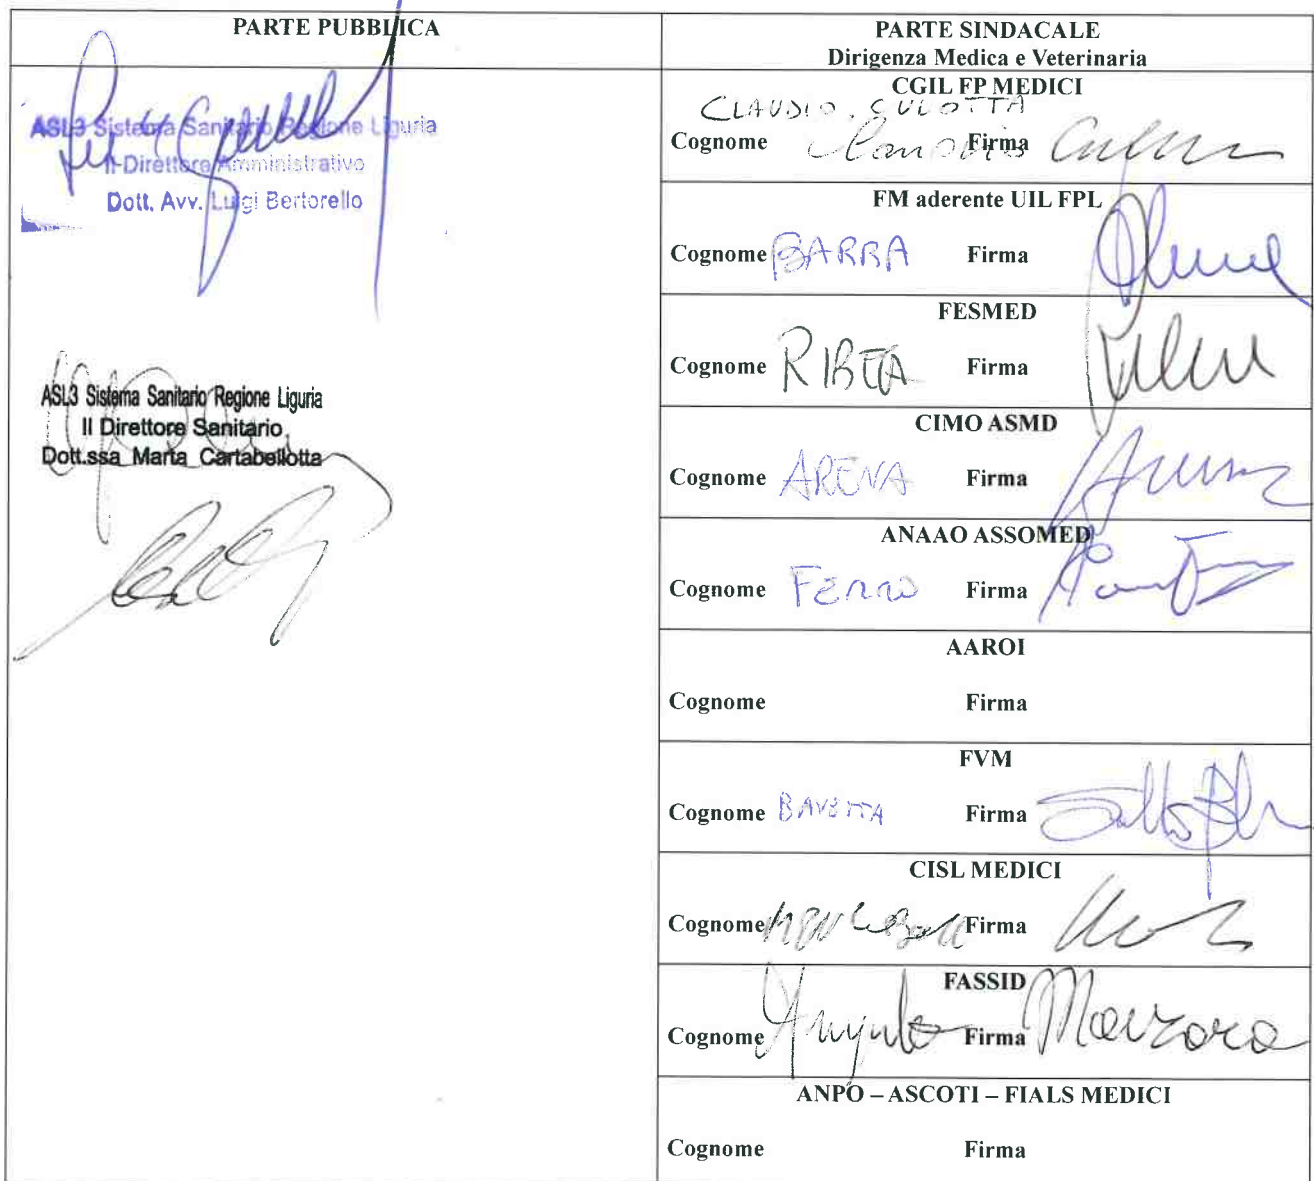 PARTE PUBBLICA
ASL3 Sistema Sanitario Regione Liguria
Il Direttore Amministrativo
Dott. Avv. Luigi Bertorello
ASL3 Sistema Sanitario Regione Liguria
Il Direttore Sanitario
Dott.ssa Marta Cartabellotta
PARTE SINDACALE
Dirigenza Medica e Veterinaria
CGIL FP MEDICI
CLAUDIO CULOTTA
Cognome Firma
FM aderente UIL FPL
Cognome BARRA Firma
FESMED
Cognome Firma
CIMO ASMD
Cognome ARENA Firma
ANAAO ASSOMED
Cognome FERRO Firma
AAROI
Cognome Firma
FVM
Cognome BAVETTA Firma
CISL MEDICI
Cognome Firma
FASSID
Cognome Firma
ANPO – ASCOTI – FIALS MEDICI
Cognome Firma